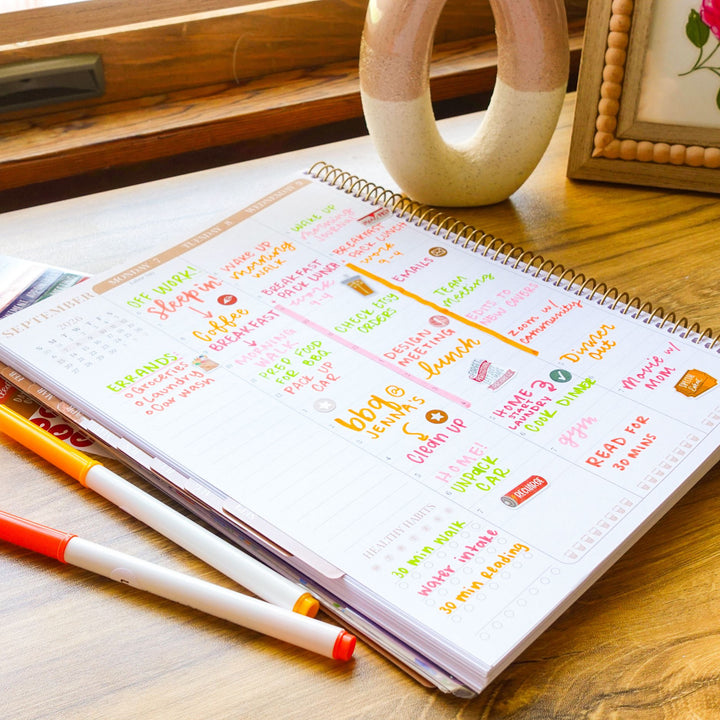 SEPTEMBER
2026
S M T W T F S
ERRANDS:
o Groceries
o Laundry
o Car wash
MONDAY 7
OFF WORK!
Sleepin'
Coffee
BREAKFAST
MORNING
WALK
PREP FOOD
FOR BBQ
PACK UP
CAR
bbq @
JENNA'S
Clean up
HOME!
UNPACK
CAR
TUESDAY 8
WAKE UP
morning
WALK
BREAKFAST
PACK LUNCH
work
9-4
CHECK
ORDERS
DESIGN
MEETING
lunch
HOME
START
LAUNDRY
COOK DINNER
gym
READ FOR
30 MINS
WEDNESDAY 9
WAKE UP
morning
JOURNAL
BREAKFAST
PACK LUNCH
work
9-4
EMAILS
TEAM
meeting
EDITS TO
NEW COVERS!
Zoom w/
community
Dinner
Out
Movie w/
MOM
HEALTHY HABITS
30 min Walk
water intake
30 min Reading